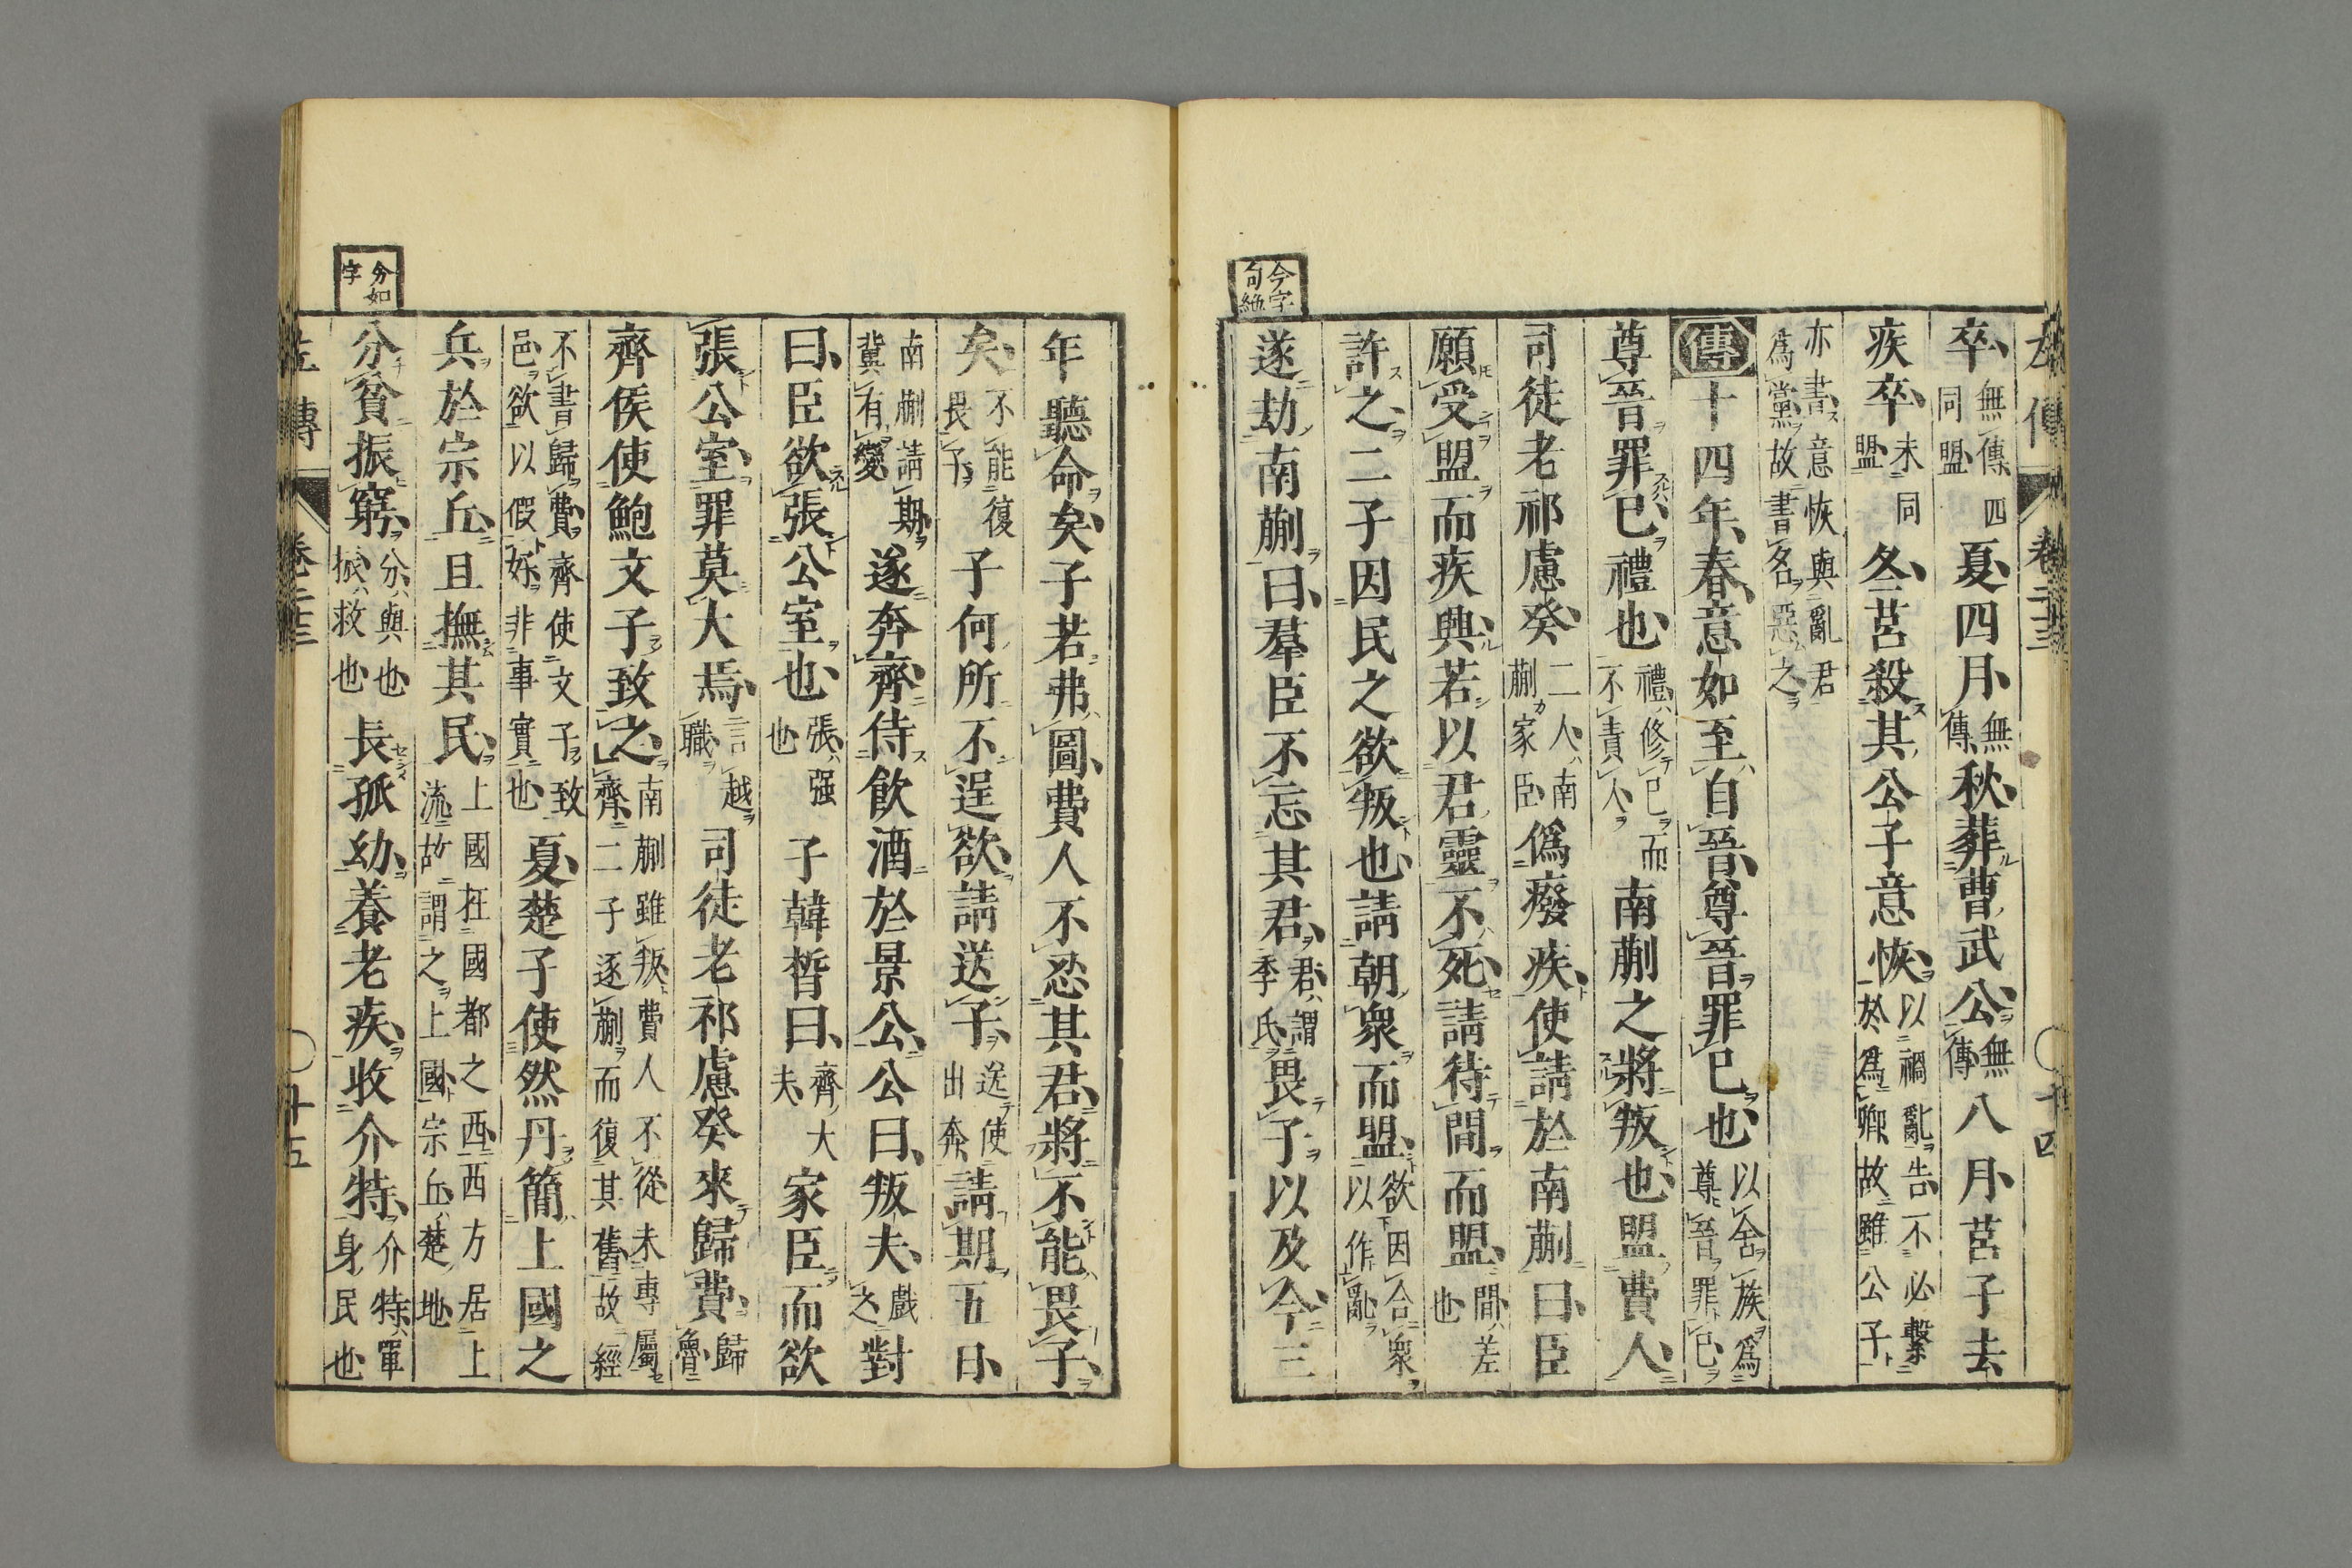 左傳 卷二十三 十四
卒無傳四同盟夏四月無傳秋葬曹武公無傳八月莒子去
疾卒未同盟冬莒殺其公子意恢以禍亂告不必繋於爲卿故雖公子
亦書意恢與亂君爲黨故書名惡之
傳十四年春意如至自晉尊晉罪已也以舍族爲尊晉罪已
尊晉罪已禮也禮修已而不責人南蒯之將叛也盟費人
司徒老祁慮癸二人南蒯家臣僞癈疾使請於南蒯曰臣
願受盟而疾興若以君靈不死請待間而盟間差也
許之二子因民之欲叛也請朝衆而盟欲因合衆以作亂
今字句絶
遂劫南蒯曰羣臣不忘其君君謂季氏畏子以及今三
年聽命矣子若弗圖費人不忍其君將不能畏子
矣不能復畏子子何所不逞欲請送子送使出奔請期五日
南蒯請期冀有變遂奔齊侍飲酒於景公公曰叛夫戲之對
曰臣欲張公室也張强也子韓晳曰齊大夫家臣而欲
張公室罪莫大焉言越職司徒老祁慮癸來歸費歸魯
齊侯使鮑文子致之南蒯雖叛費人不從未專屬齊二子逐蒯而復其舊故經
不書歸費齊使文子致邑欲以假好非事實也夏楚子使然丹簡上國之
兵於宗丘且撫其民上國在國都之西西方居上流故謂之上國宗丘楚地
分如字
分貧振窮分與也振救也長孤幼養老疾收介特介特單身民也
左傳 卷二十三 十五